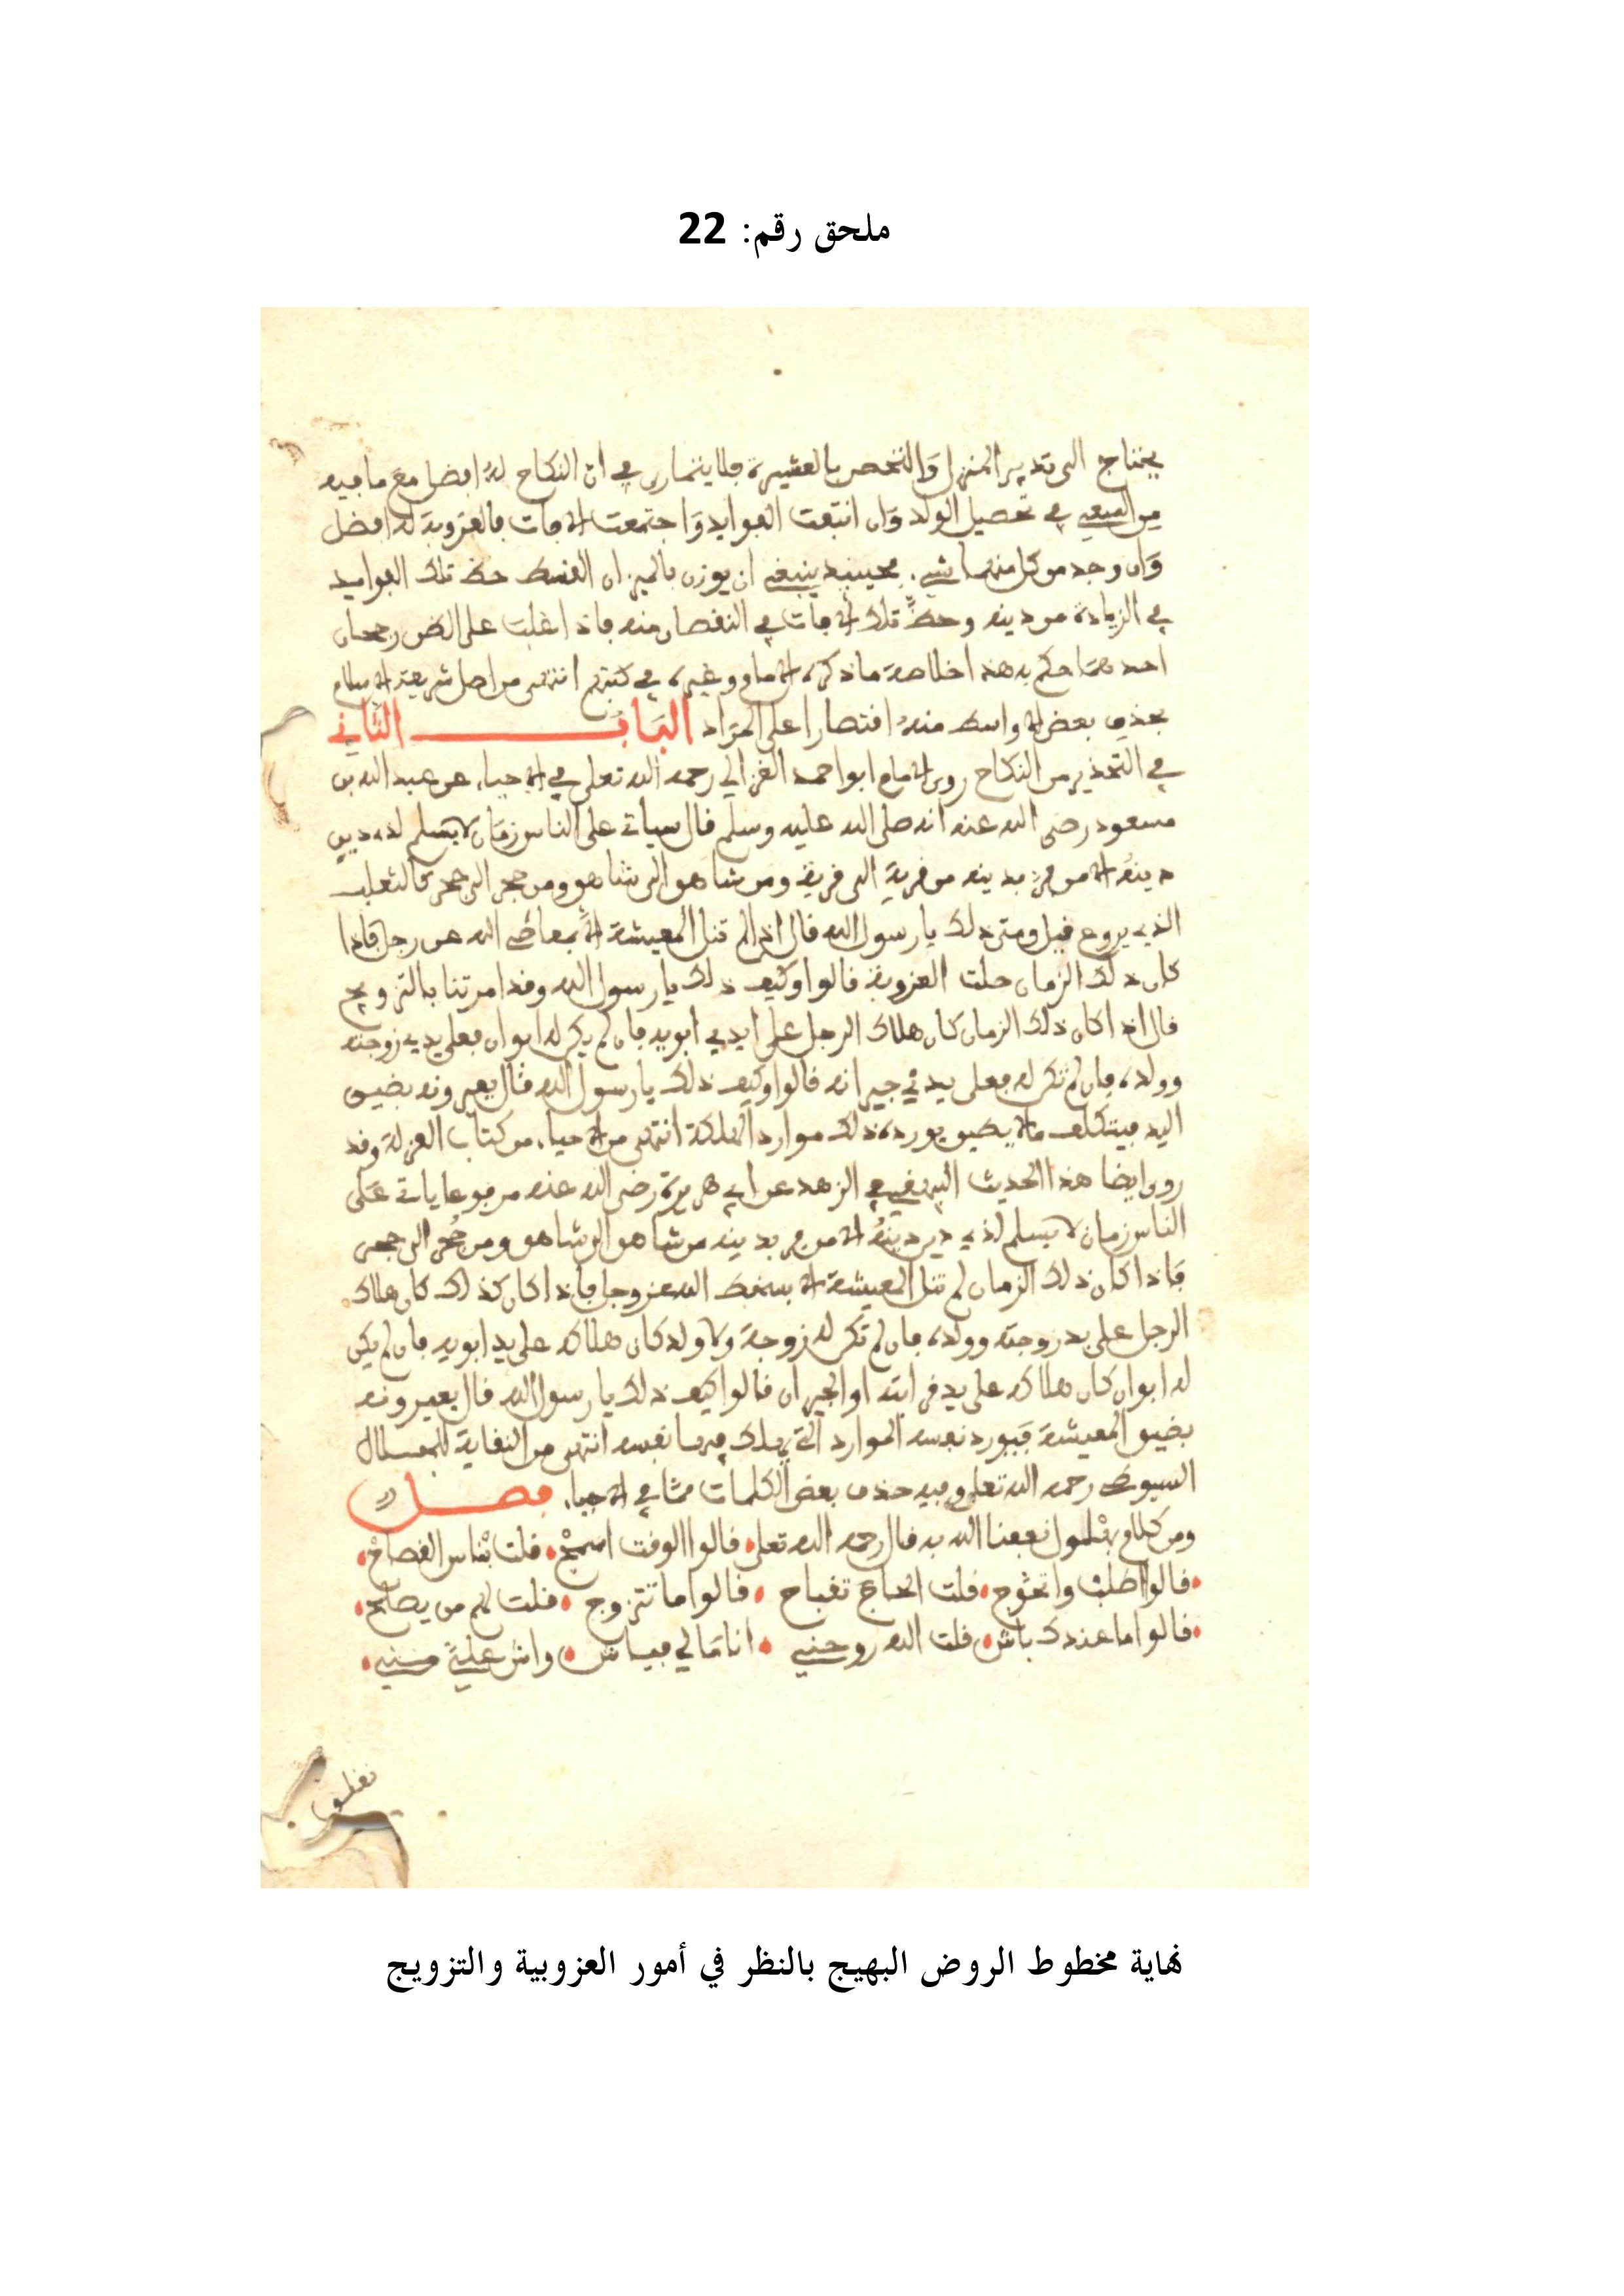 ملحق رقم: 22
يحتاج الى تدبير المنزل والتحصن بالعشيرة فلا يتمارى في ان النكاح له افضل مع ما فيه
من السعي في تحصيل الولد وان انتفت الفوايد واجتمعت الافات فالعزوبة له افضل
وان وجد من كل منهما شيء فحينيذ ينبغي ان يوزن بالميزان القسط حظ تلك الفوايد
في الزيادة من دينه وحظ تلك الافات في النقصان منه فاذا غلب على الظن رجحان
احدهما حكم به هذا خلاصة ما ذكره الامام وغيره في كتبهم انتهى من اصل شريعة الاسلام
بحذف بعض الاواسط منه اقتصارا على المراد الباب الثاني
في التحذير من النكاح روى الامام ابو احمد الغزالي رحمه الله تعلى في الاحياء عن عبد الله بن
مسعود رضي الله عنه انه صلى الله عليه وسلم قال سياتي على الناس زمان لا يسلم لذي دين
دينه الا من فر بدينه من قرية الى قرية ومن شاهق الى شاهق ومن جحر الى جحر كالثعلب
الذي يروغ قيل ومتى ذلك يا رسول الله قال اذا لم تنل المعيشة الا بمعاصي الله عز وجل فاذا
كان ذلك الزمان حلت العزوبة قالوا وكيف ذلك يا رسول الله وقد امرتنا بالتزويج
قال اذا كان ذلك الزمان كان هلاك الرجل على ايدي ابويه فان لم يكن له ابوان فعلى يدي زوجته
وولده فان لم تكن له فعلى يدي جيرانه قالوا وكيف ذلك يا رسول الله قال يعيرونه بضيق
اليد فيتكلف ما لا يطيق يورده ذلك موارد الهلكة انتهى من الاحياء من كتاب العزلة وقد
روى ايضا هذا الحديث البيهقي في الزهد عن ابي هريرة رضي الله عنه مرفوعا ياتي على
الناس زمان لا يسلم لذي دين دينه الا من فر بدينه من شاهق الى شاهق ومن جحر الى جحر
فاذا كان ذلك الزمان لم تنل المعيشة الا بسخط الله عز وجل فاذا كان كذلك كان هلاك
الرجل على يد زوجته وولده فان لم تكن له زوجة ولا ولد كان هلاكه على يد ابويه فان لم يكن
له ابوان كان هلاكه على يد قرابته او الجيران قالوا كيف ذلك يا رسول الله قال يعيرونه
بضيق المعيشة فيورد نفسه الموارد التي يهلك فيها نفسه انتهى من النقاية
السيوطي رحمه الله تعلى وفيه حذف بعض الكلمات مما في الاحياء فصل
ومن كلام بهلول نفعنا الله به قال رحمه الله تعلى قالوا الوقت اسمح قلت بناس الفصاح
قالوا اطلب واتحوج قلت الحاج تقباح قالوا ما تتزوج قلت لهم من يصلح
قالوا ما عندك باش قلت الله روحني انا مالي فياش واش علي مني
نهاية مخطوط الروض البهيج بالنظر في أمور العزوبية والتزويج